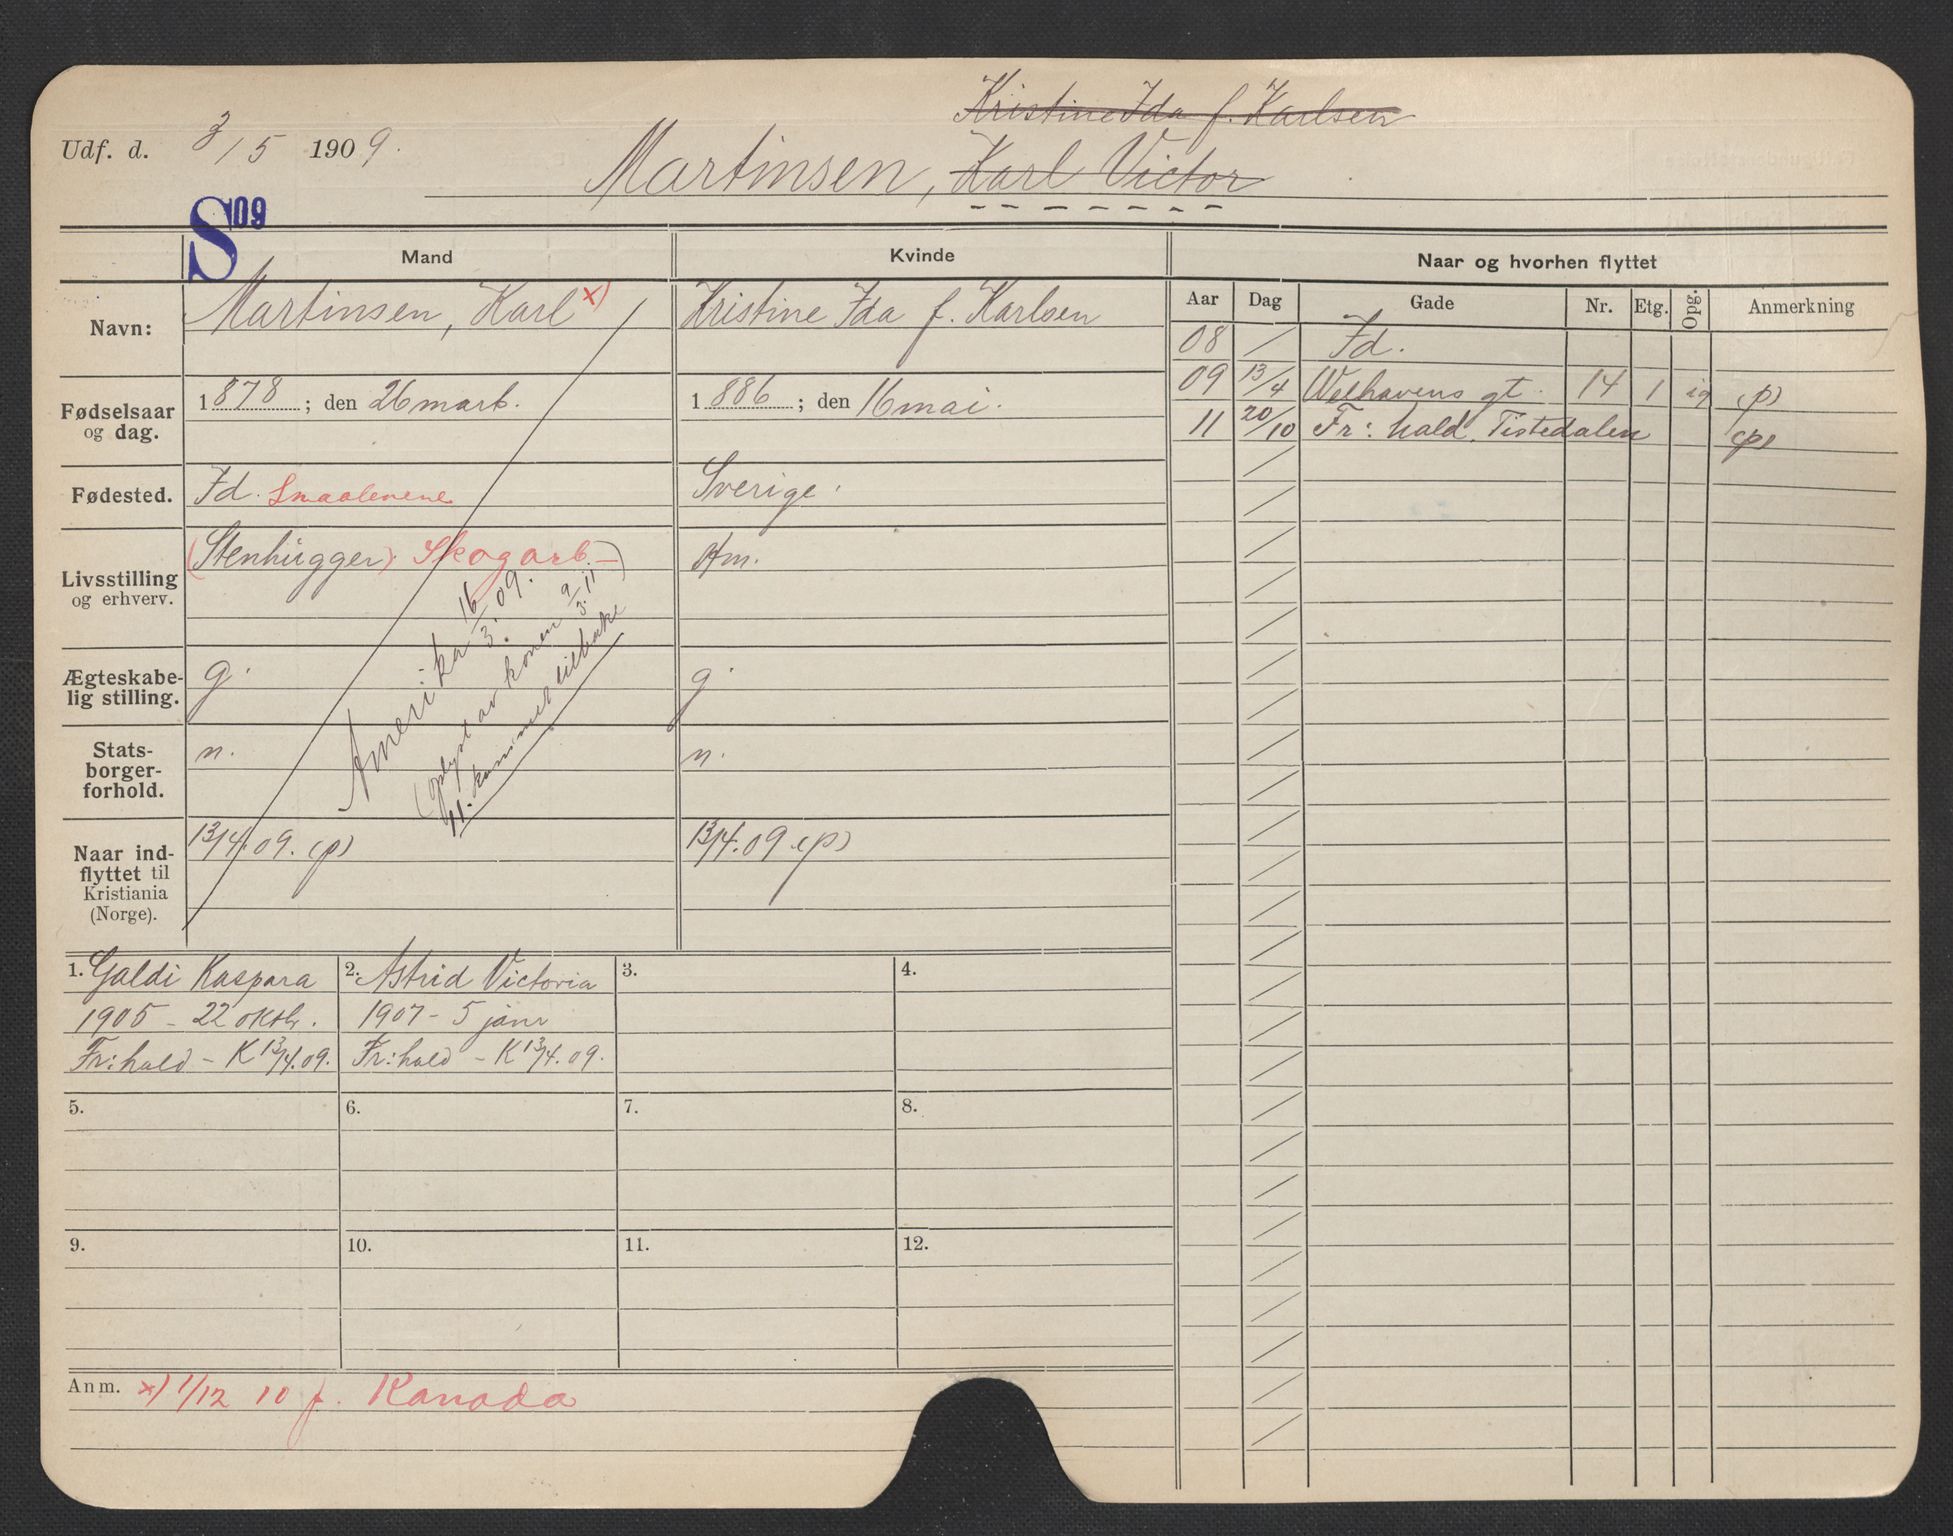 Kristine Ida f. Karlsen
Udf. d. 3/5 1909.
Martinsen, Karl Victor
S 09
Mand
Kvinde
Naar og hvorhen flyttet
Navn:
Martinsen, Karl x)
Kristine Ida f. Karlsen
Aar Dag Gade Nr. Etg. Opg. Anmerkning
08 / Id.
09 13/4 Welhavens gt. 14 1 ig (p)
11 20/10 Fr:hald. Tistedalen (p)
Fødselsaar og dag.
1878; den 26 mart.
1886; den 16 mai.
Fødested.
Id. Smaalenene
Sverige.
Livsstilling og erhverv.
(Stenhugger) Skogarb.
Hm.
Amerika 16/3. 09.
(oplyst av konen 9/3. 11)
11. kommet tilbake
Ægteskabelig stilling.
g.
g.
Statsborgerforhold.
n.
n.
Naar indflyttet til Kristiania (Norge).
13/4. 09. (p)
13/4. 09. (p)
1. Galdi Kaspara
1905 - 22 oktb.
Fr:hald - K 13/4. 09.
2. Astrid Victoria
1907 - 5 janr
Fr:hald - K 13/4. 09.
3.
4.
5.
6.
7.
8.
9.
10.
11.
12.
Anm. x) 1/12 10 f. Kanada